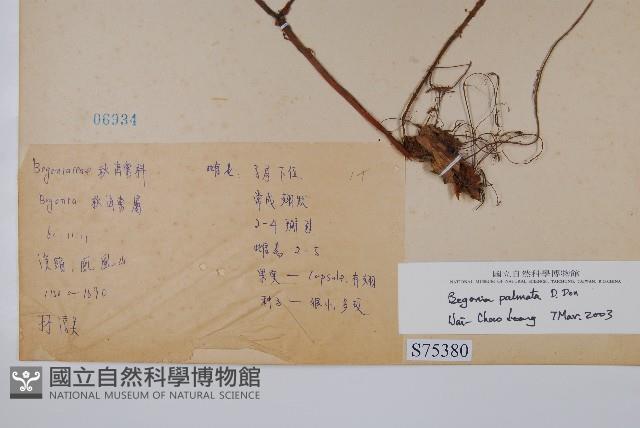 06934
Begoniaceae 秋海棠科
Begonia 秋海棠屬
61. 11. 11
溪頭, 鳳凰山
雌花: 子房下位
常成翅狀
2-4
雌蕊 2-5
果实 — Capsule, 有翅
種子 — 很小, 多數
國立自然科學博物館
NATIONAL MUSEUM OF NATURAL SCIENCE, TAICHUNG, TAIWAN, R.O.CHINA
Begonia palmata D. Don
7 Mar. 2003
S75380
國立自然科學博物館
NATIONAL MUSEUM OF NATURAL SCIENCE